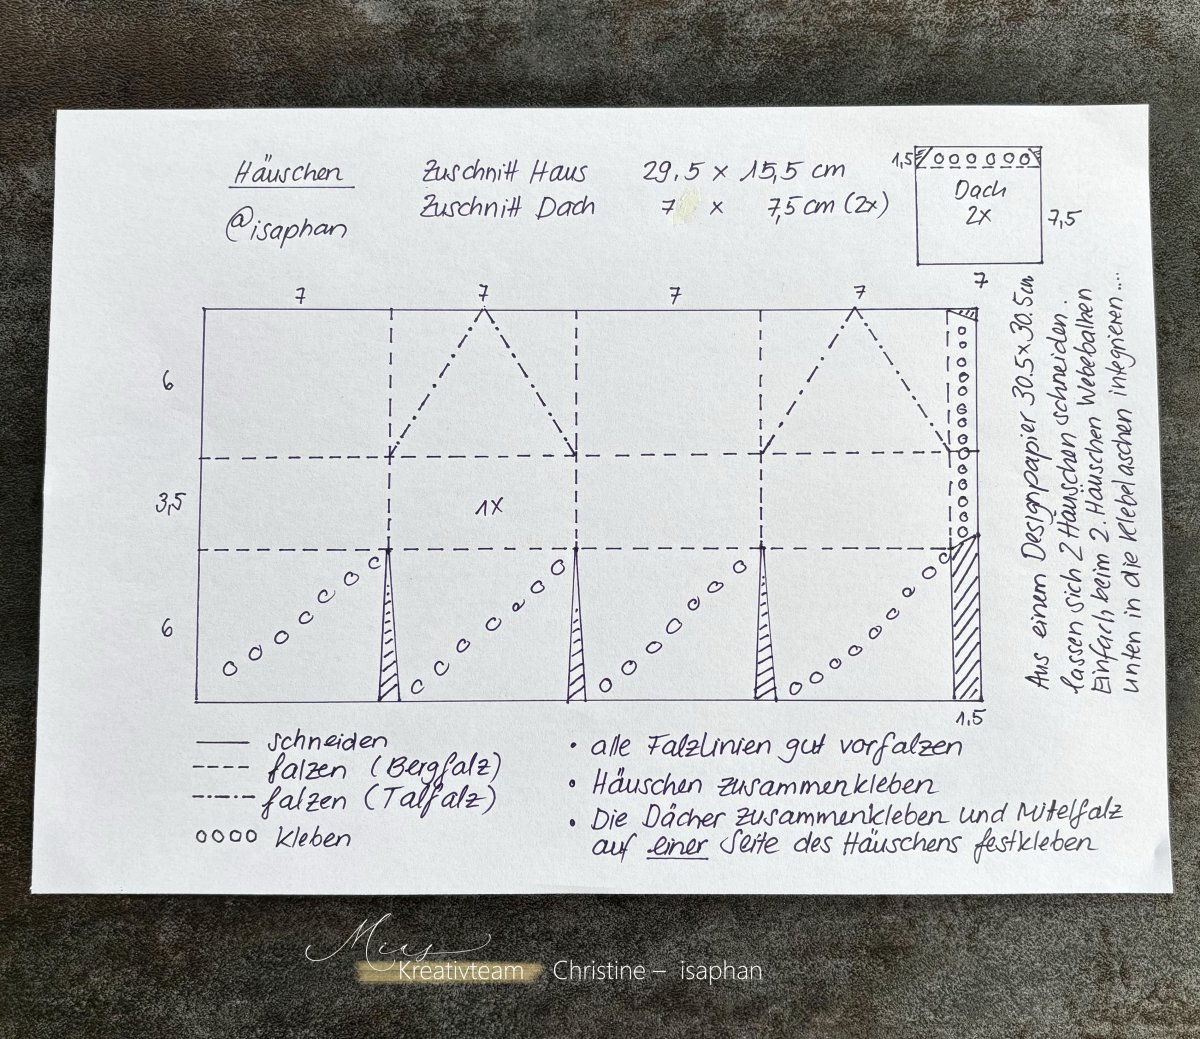 Häuschen
@isaphan
Zuschnitt Haus 29,5 x 15,5 cm
Zuschnitt Dach 7 x 7,5 cm (2x)
1,5
Dach
2x
7,5
7
7
7
7
7
6
3,5
1x
6
1,5
Aus einem Designpapier 30.5x30.5cm
lassen sich 2 Häuschen schneiden.
Einfach beim 2. Häuschen Webebalken
unten in die Klebelaschen integrieren....
schneiden
falzen (Bergfalz)
falzen (Talfalz)
kleben
• alle Falzlinien gut vorfalzen
• Häuschen zusammenkleben
• Die Dächer zusammenkleben und Mittelfalz
auf einer Seite des Häuschens festkleben
Mias
Kreativteam Christine – isaphan